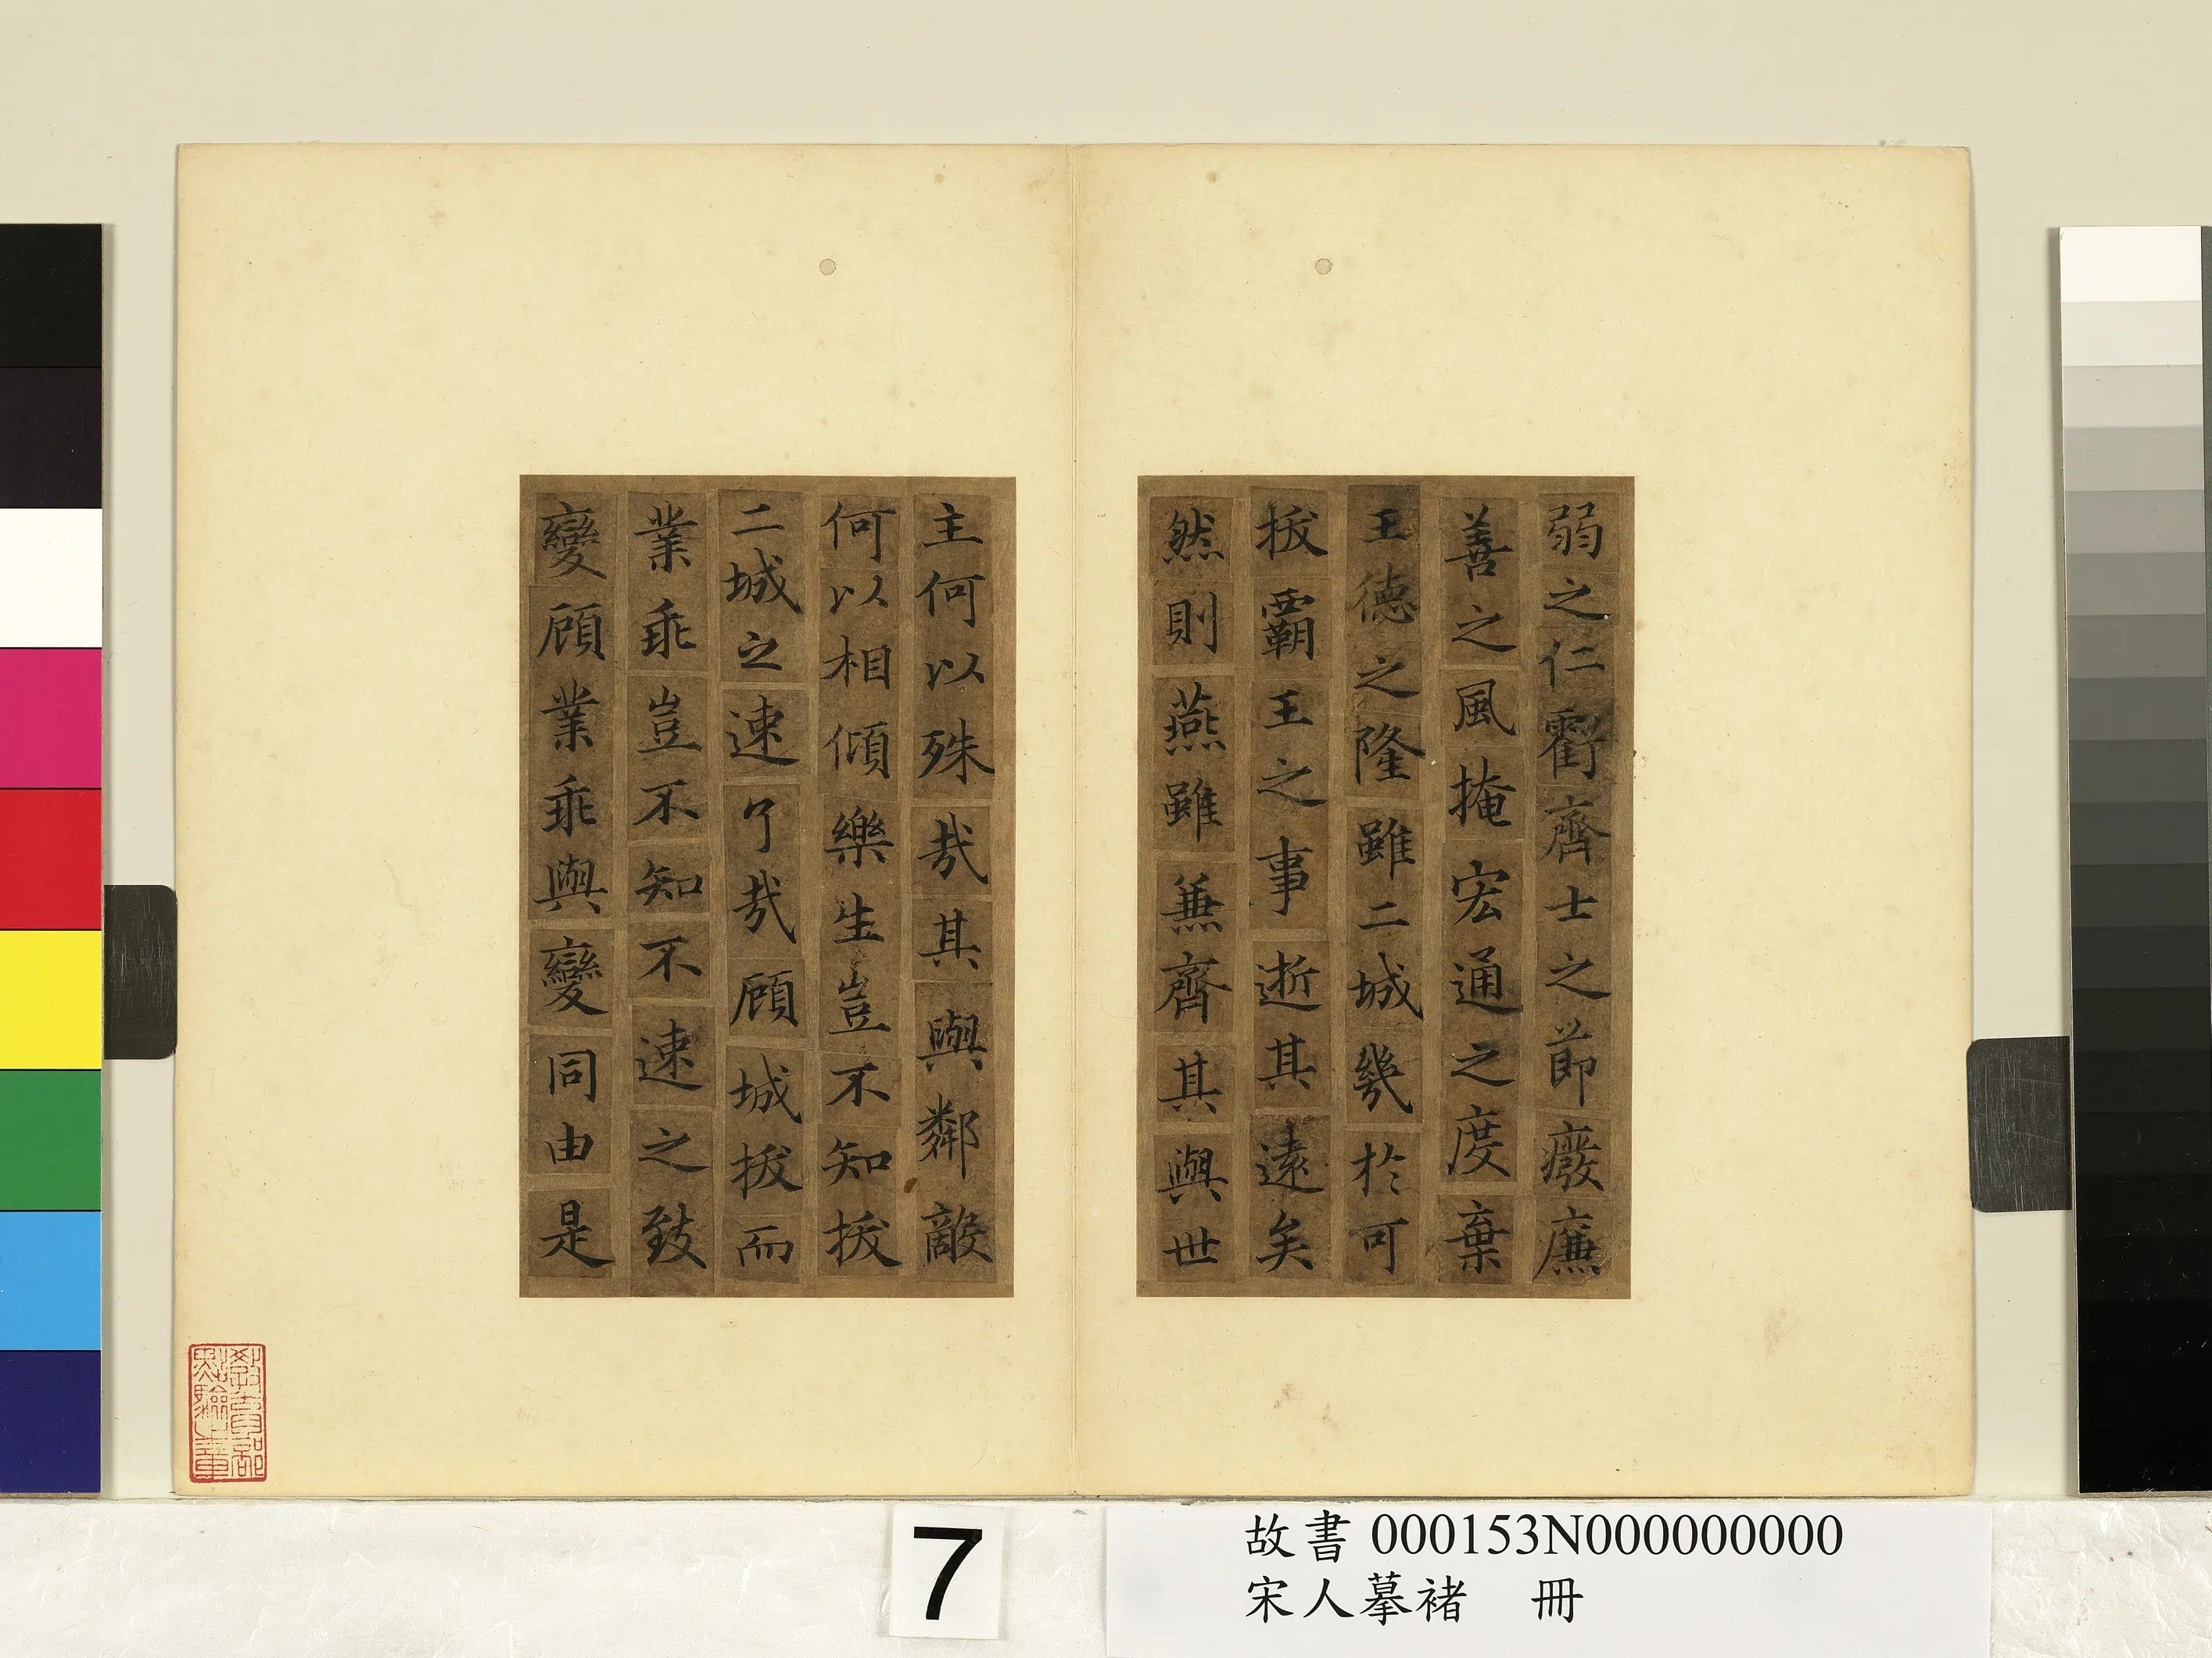 弱之仁劀齊士之節廢廉
善之風掩宏通之度棄
王德之隆雖二城幾於可
拔霸王之事逝其遠矣
然則燕雖兼齊其與世
主何以殊哉其與鄰敵
何以相傾樂生豈不知拔
二城之速了哉顧城拔而
業乖豈不知不速之致
變顧業乖與變同由是
教育部
點驗之章
7
故書000153N000000000
宋人摹褚 冊